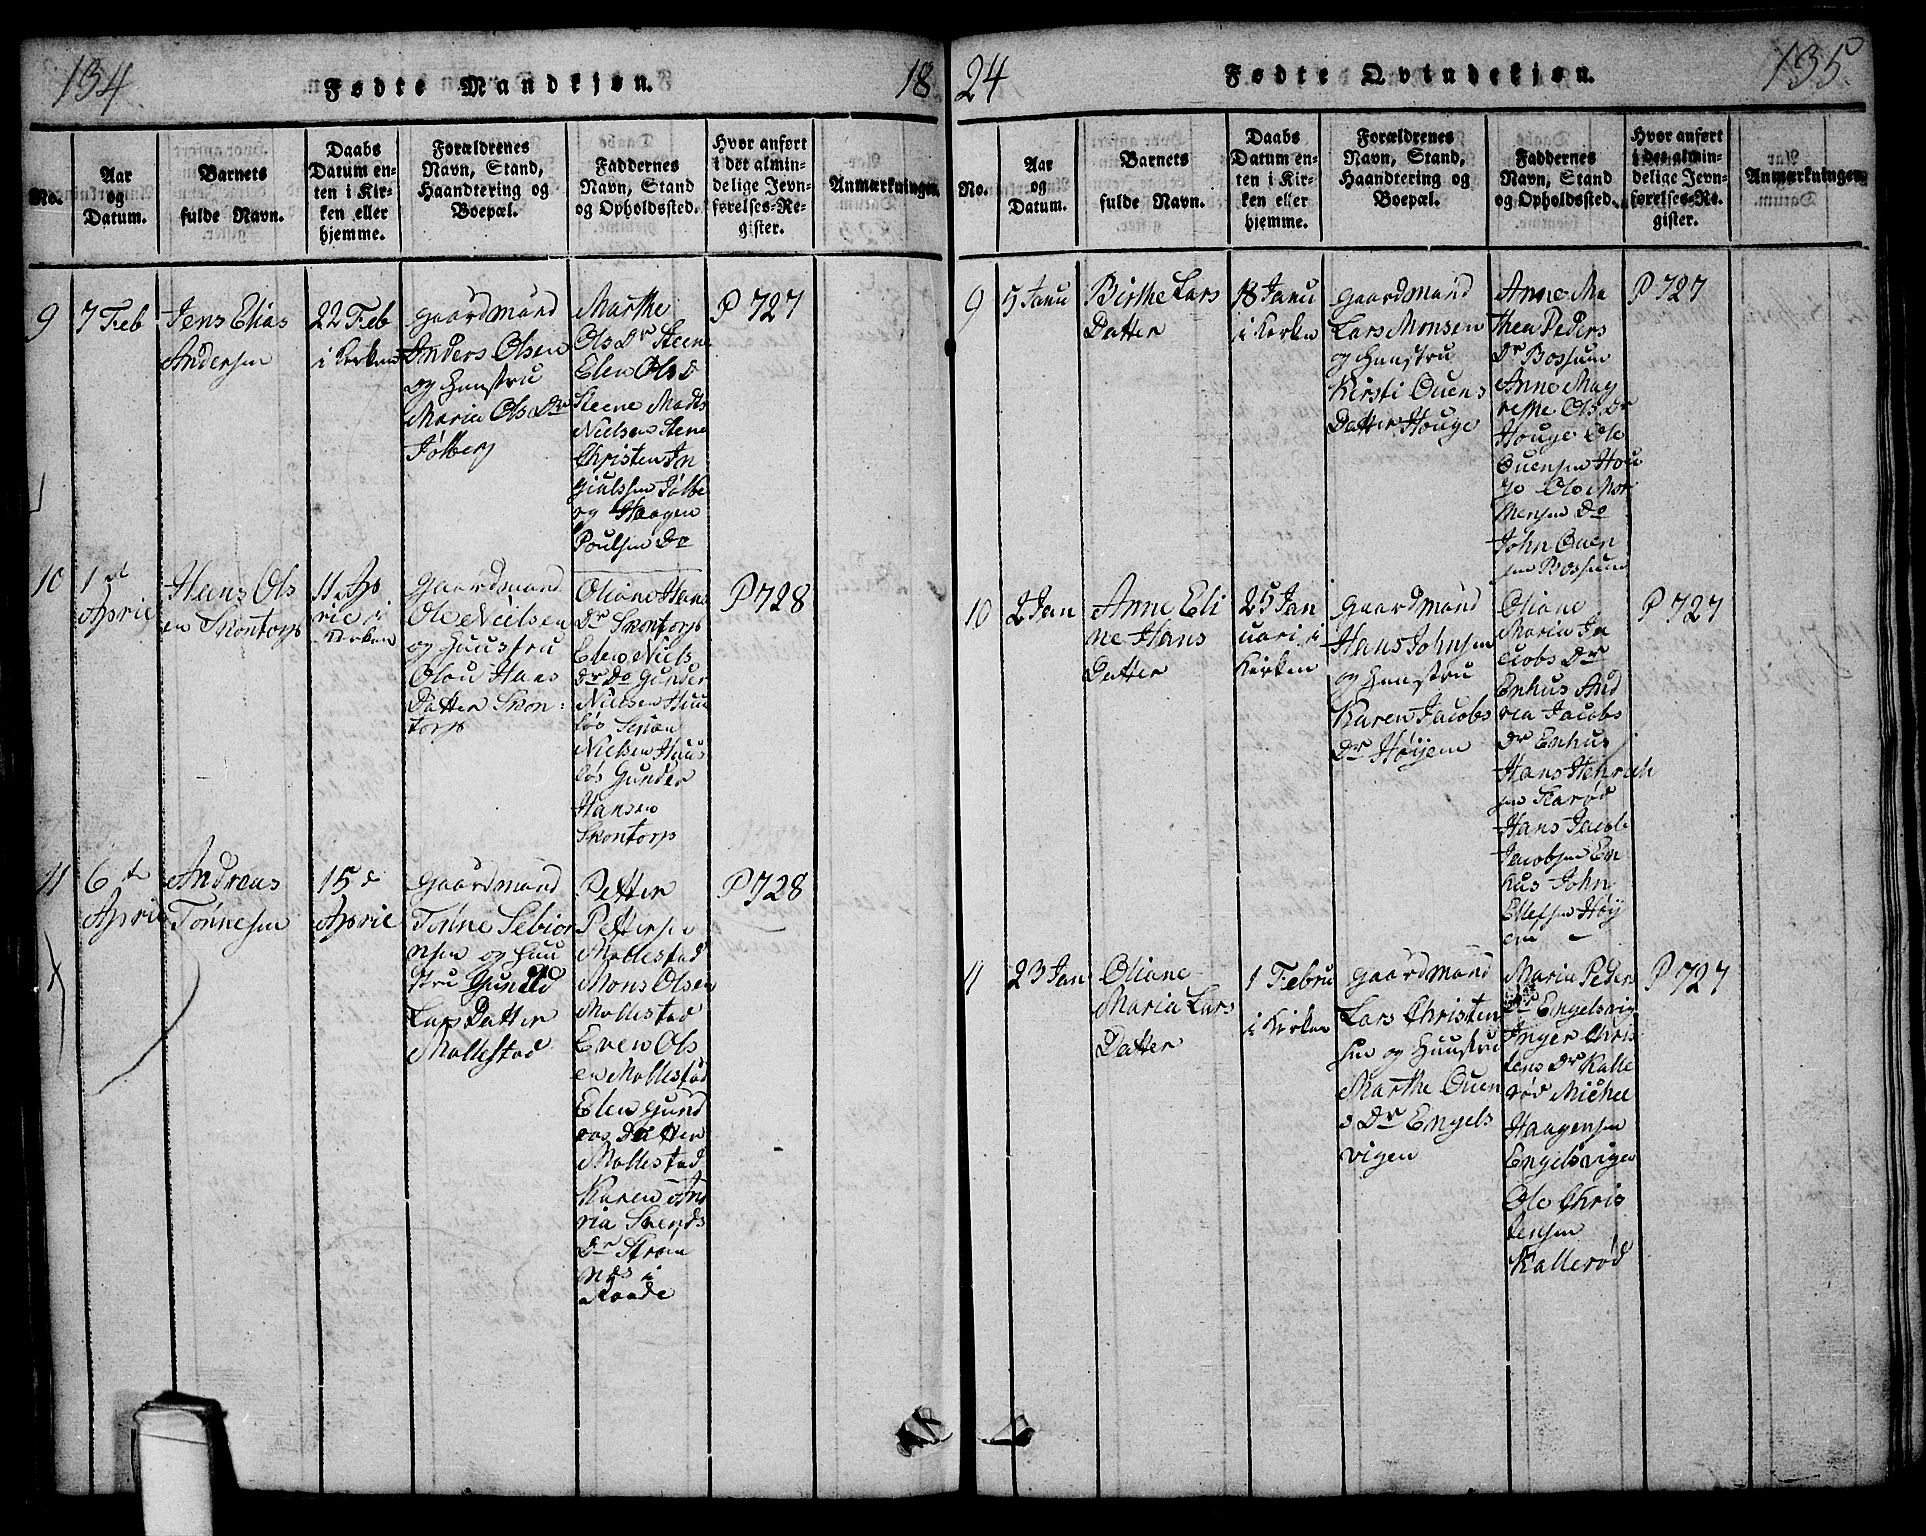 134
Fødte Mandkjøn.
18
No.
Aar
og
Datum.
Barnets
fulde Navn.
Daabs
Datum en-
ten i Kir-
ken eller
hjemme.
Forældrenes
Navn, Stand,
Haandtering og
Boepæl.
Faddernes
Navn, Stand
og Opholdssted.
Hvor anført
i det almin-
delige Jevn-
førelses-Re-
gister.
Anmærkninger.
9
7 Feb
Jens Elias
Andersen
22 Feb
i Kirken
gaardmand
Anders Olsen
og Huustru
Maria Ols Dr
Jølberg
Marthe
Ols Dr Steene
Elen Ols D
Steene Mads
Nielsen Stene
Christen In
Jølbe
og Haagen
Poulsen Do
P 727
10
1
Aprie
Hans Ols
en Skontorp
11 Ap
rie i
Kirken
gaardmand
Ole Nielsen
og Huustru
Olou Hans
Datter Skon-
torp
Oliane Hans
Dr Skontorp
Elen Niels
Dr Do Gunder
Nielsen Huu
løs Søren
Nielsen Huus
løs Gunder
Hansen
Skontorp
P 728
11
6 te
Aprie
Andreas
Tønnesen
15 d
Aprie
gaardmand
Tønne Sebior
nsen og Huu
stru Gunild
Lars Datter
Mollestad
Petter
Pettersen
Mollestad
Mons Olsen
Mollestad
Even Ols
en Mollestad
Elen Gund
Datter
Mollestad
Karen An
ria Svends
Dr Strøm
nds i
Raade
P 728
24
Fødte Qvindekjøn.
135
No.
Aar
og
Datum.
Barnets
fulde Navn.
Daabs
Datum en-
ten i Kir-
ken eller
hjemme.
Forældrenes
Navn, Stand,
Haandtering og
Boepæl.
Faddernes
Navn, Stand
og Opholdssted.
Hvor anført
i det almin-
delige Jevn-
førelses-Re-
gister.
Anmærkninger.
9
5 Janu
Birthe Lars
Datter
18 Janu
i Kirken
gaardmand
Lars Monsen
og Huustru
Kirsti Ouens
Datter Houge
Anne Ma
thea Peders
Dr Bossum
Anne May
rethe Ols Dr
Houge Ole
Ouensen Hou
ge Ole Mor
tensen Do
John Ouen
sen Bossum
P 727
10
2 Jan
Anne Eli
ne Hans
Datter
25 Jan
uari i
Kirken
gaardmand
Hans Johnsen
og Huustru
Karen Jacobs
Dr Høijem
Oliane
Maria Ja
cobs Dr
Enhus And
rea Jacobs
Dr Enhus
Hans Henrich
sen Karød
Hans Jacob
Jacobsen En
hus John
Ellefsen Høij
em
P 727
11
23 Jan
Oliane
Maria Lars
Datter
1 Febru
i Kirken
gaardmand
Lars Christen
sen og Huustru
Marthe Ouen
s Dr Engels
vigen
Maria Peder
Dr Engelsvig
Inger Chris
tens Dr Kalle
rød Michel
Haagensen
Engelsvigen
Ole Chris
tensen
Kallerød
P 727